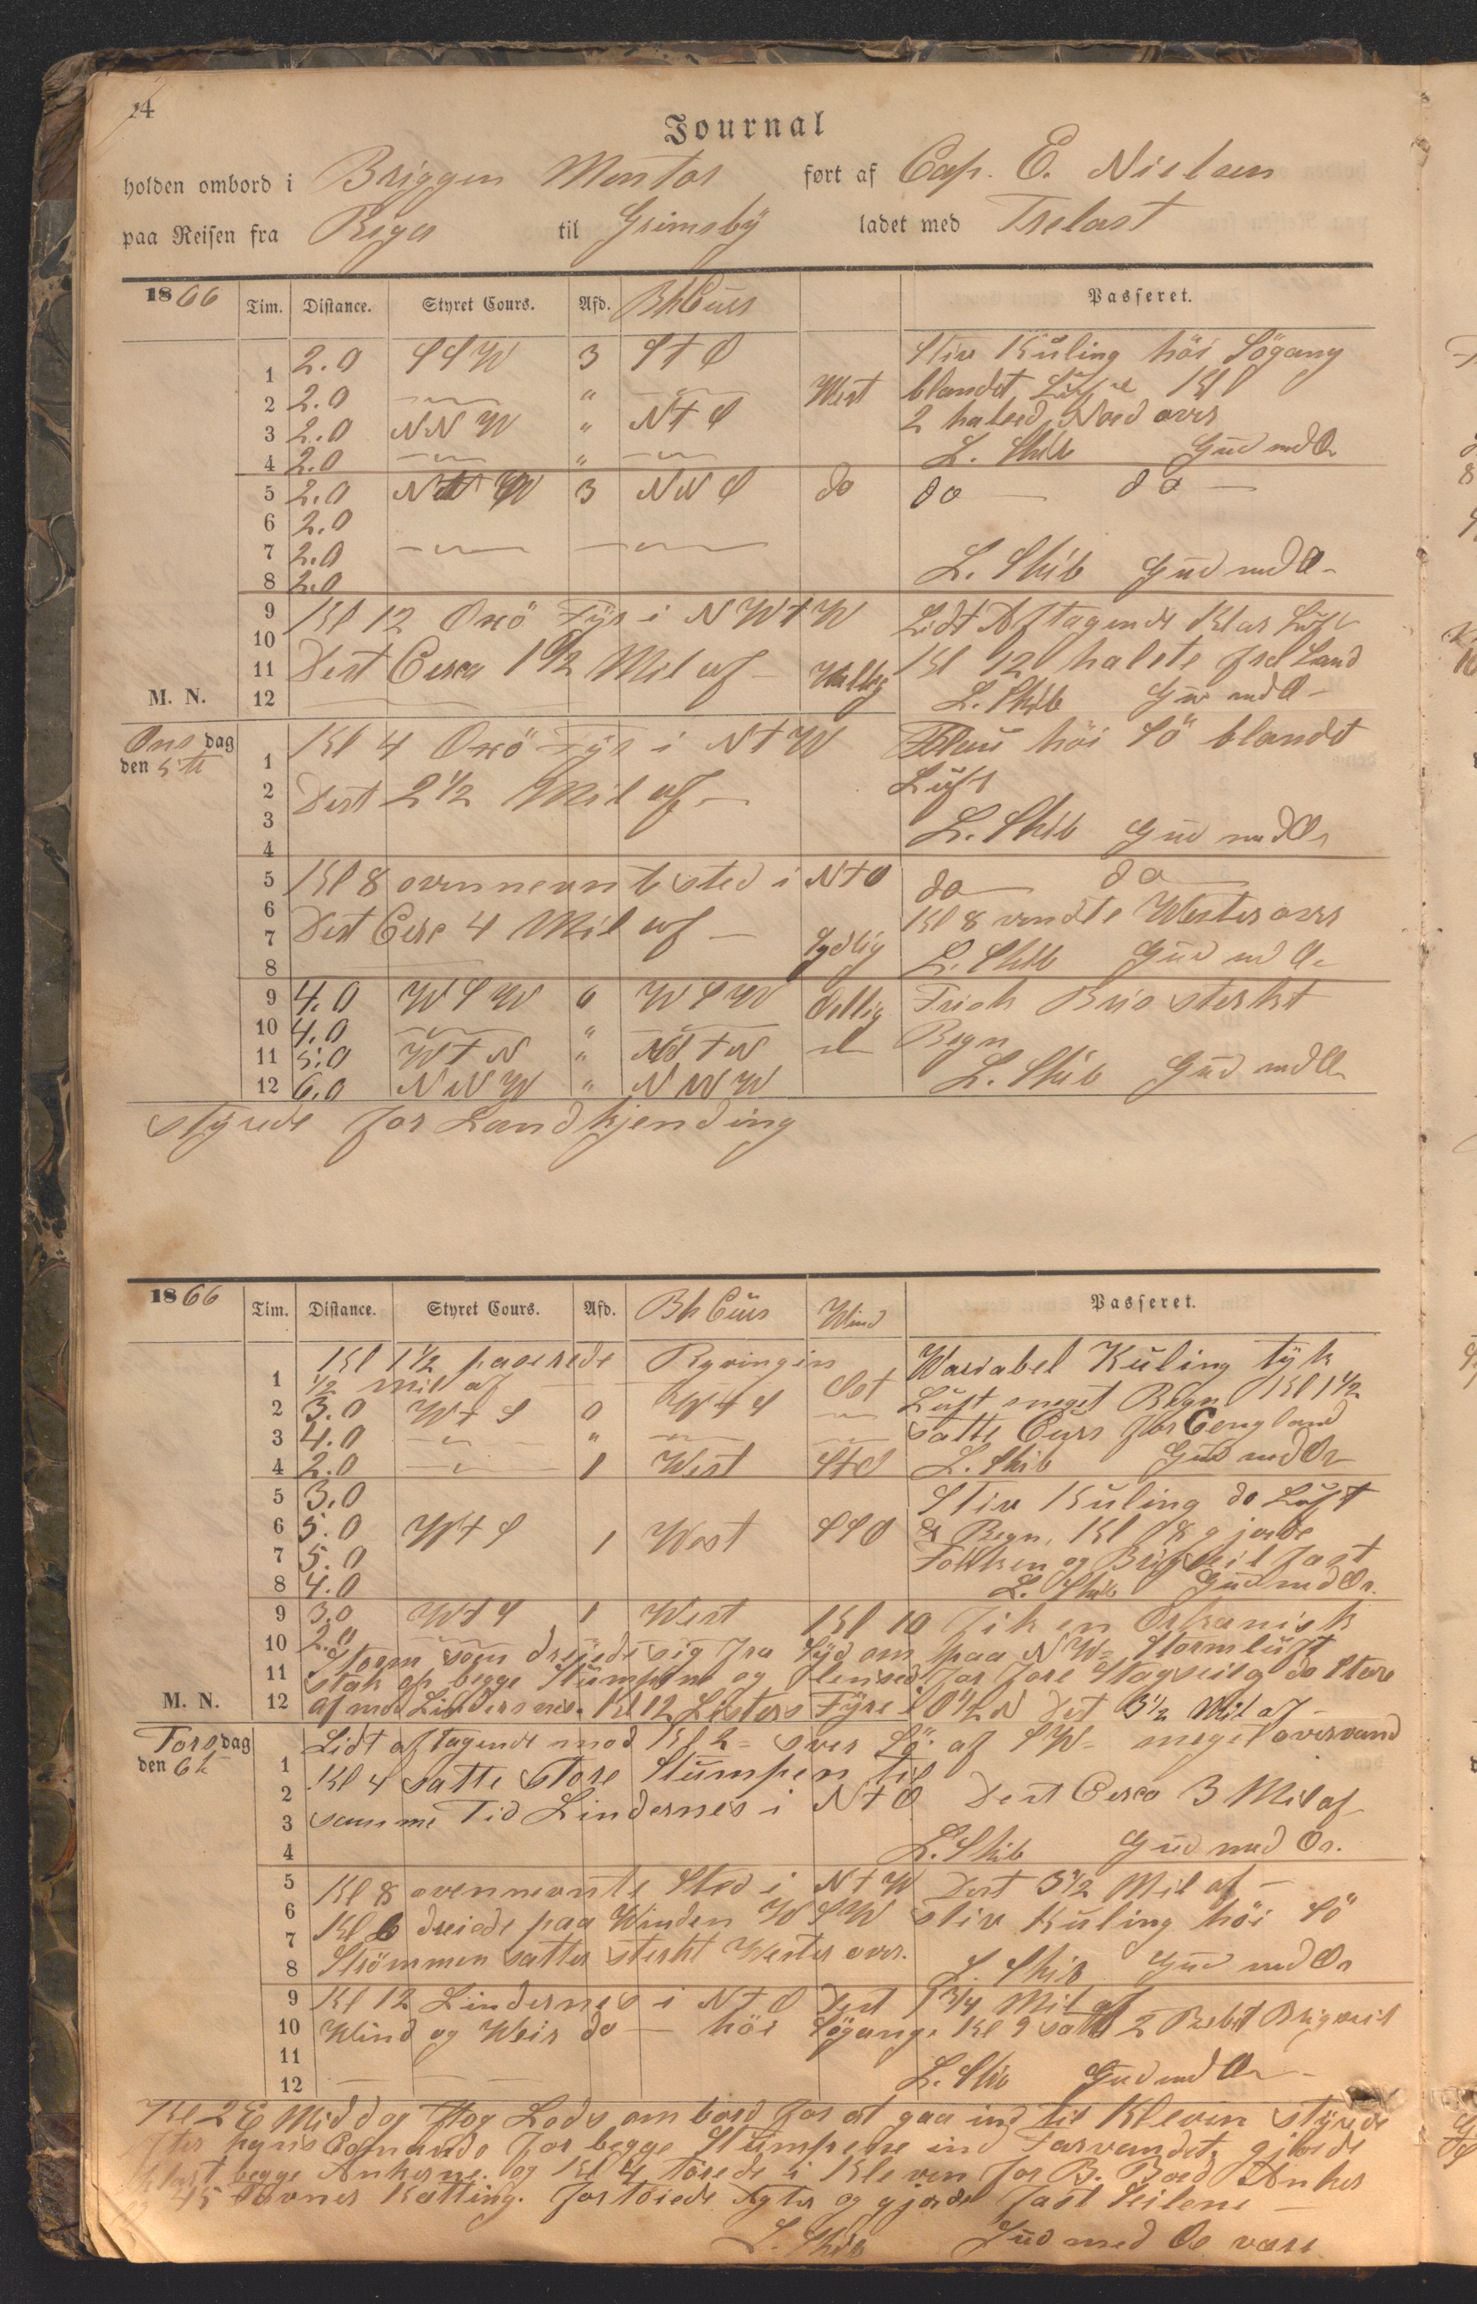 14
Journal
holden ombord i Briggen Mentor ført af Cap. E. Nielsen
paa Reisen fra Riga til Grimsby ladet med Trelast
1866 Tim. Distance. Styret Cours. Afd. BhCurs Passeret.
1 2.0 SSW 3 StO Stiv Kuling höi Sögang
2 2.0 " West blandet Luft Kl
3 2.0 NNW " NtO 2 halsed Nord over
4 2.0 " L. Skib Gud med Os
5 2.0 NNW 3 NNO do do do
6 2.0
7 2.0
8 2.0 L. Skib Gud med Os
9 Kl 12 Oxö Fyr i NWtW Lidt Aftagende Klar Luft
10
11 Dist Cirka 1 1/2 Mil af Kl 12 halste fra Land
M. N. 12 L. Skib Gud med Os
Onsdag Kl 4 Oxö Fyr i NtW Flau höi Sö blandet
den 5te 1
2 Dist 2 1/2 Mil af Luft
3
4 L. Skib Gud med Os
5 Kl 8 ovennevnte sted i NtO do do
6 Kl 8 vendte Wester over
7 Dist Circa 4 Mil af Sydlig
8 L. Skib Gud med Os
9 4.0 WSW 0 WSW Ostlig Frisk Bris sterkt
10 4.0 " Regn
11 5.0 WtN "
12 6.0 NNW " NNW L. Skib Gud med Os
styrede for Landkjending
1866 Tim. Distance. Styret Cours. Afd. Bh Curs Wind Passeret.
Kl 1 1/2 passerede Ryvingen Wariabel Kuling tyk
1 1/2 mil af Ost Luft meget Regn Kl 1 1/2
2 3.0 WtS 0 WtS satte Curs for Eengland
3 4.0 "
4 2.0 1 West StO L. Skib Gud med Os
5 3.0 Stiv Kuling do Luft
6 5.0 WtS 1 West SSO & Regn, Kl 8 gjorde
7 5.0 Fokken og Brigseil fast
8 4.0 L. Skib Gud med Os.
9 3.0 WtS 1 West Kl 10 Fik en Orkanisk
10 2.0 Storm som dreiede sig fra Syd om paa NW Stormluft
11 stak op begge Stumpene og Lensed for Fore Stagseil do Store
M. N. 12 af mod Lindersnes. Kl 12 Listers Fyre i O 1/2 N Dist 3 1/2 Mil af
Torsdag Lidt aftagende mod Kl 2 sver Sö af SW meget overvand
den 6te 1 Kl 4 satte Store Stumpen til
2
3 samme Tid Lindernes i NtO Dist Cirka 3 Mil af
4 L. Skib Gud med Os.
5 Kl 8 ovennevnte Sted i NtW Dist 3 1/2 Mil af
6 Kl 6 dreiede paa Winden WSW stiv Kuling höi Sö
7 Strömmen satter sterkt Wester over.
8 L. Skib Gud med Os
9 Kl 12 Lindernes i NtO Dist 1 3/4 Mil af
10 Wind og Weir do höi Sögang. Kl 9 satt 2 Rebet Brigseil
11
12 L. Skib Gud med Os
Kl 2 E Middag Tog Lods om bord for at gaa ind til Kleven styrede
efter hans Comando for begge Stumpene ind Farvandet, gjorde
klart begge Ankerne. og Kl 4 törede i Kleven for B. Bord Anker
og 45 Favner Kætting. fortöiede Agter og gjorde fast Seilene
L. Skib Gud med Os være